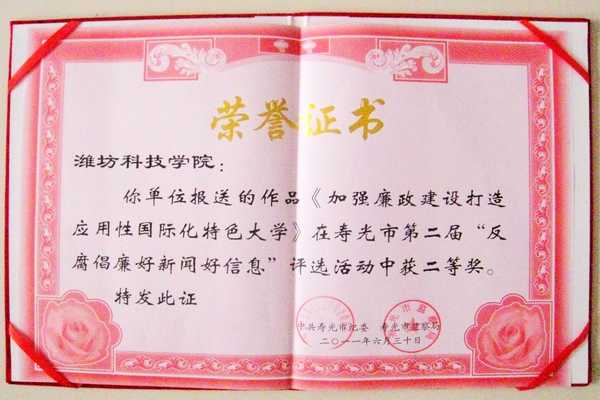 荣誉证书
潍坊科技学院：
你单位报送的作品《加强廉政建设打造
应用性国际化特色大学》在寿光市第二届“反
腐倡廉好新闻好信息”评选活动中获二等奖。
特发此证
中共寿光市纪委 寿光市监察局
二〇一一年六月三十日